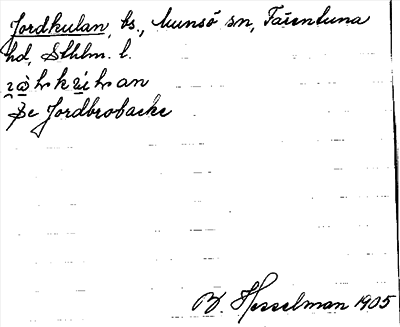 Jordkulan, bs., Munsö sn, Färentuna
hd, Sthlm. l.
Se Jordbrobacke
B. Hesselman 1905